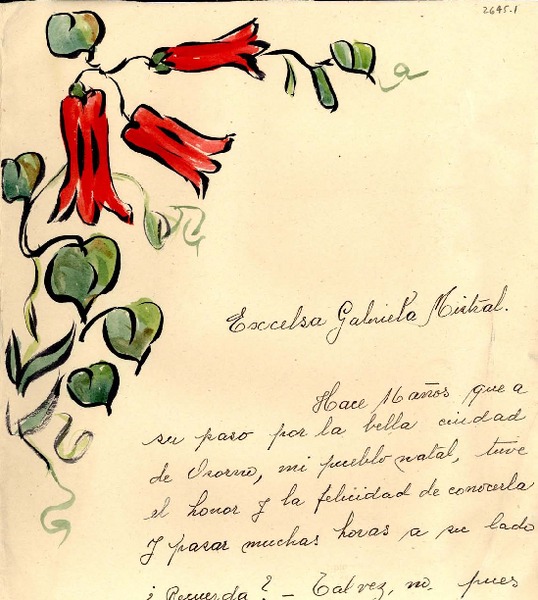 2645.1
Excelsa Gabriela Mistral.
Hace 16 años que a
su paso por la bella ciudad
de Osorno, mi pueblo natal, tuve
el honor y la felicidad de conocerla
y pasar muchas horas a su lado
¿Recuerda? - Tal vez, no, pues